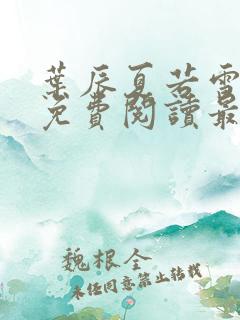 葉辰夏若雪
免費閱讀最
魏根全
未任同意禁止转载